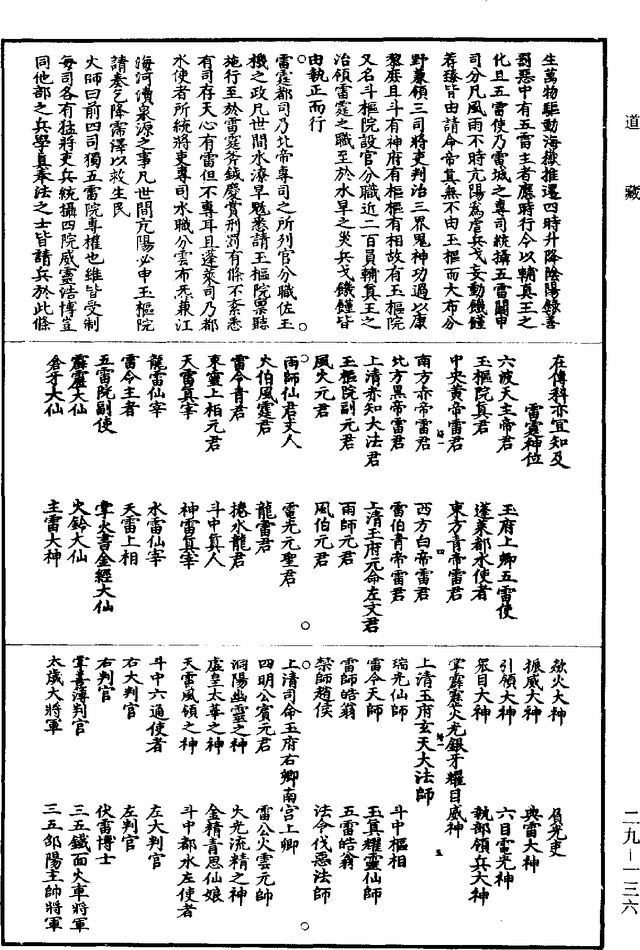 道藏
生萬物驅動海嶽推遷四時升降陰陽錄善
罰惡中有五雷主者應時行令以輔真王之
化且五雷使乃雷城之專司統攝五雷關申
司分凡風雨不時亢陽為虐兵戈妄動饑饉
荐臻皆由請命帝真無不由玉樞而大布分
野兼領三司將吏判治三界鬼神功過以康
黎庶且斗有神府有樞樞有相故有玉樞院
又名斗樞院設官分職近二百員輔真王之
治領雷霆之職至於水旱之災兵戈饑饉皆
由執正而行
雷霆都司乃北帝專司之所列官分職佐玉
機之政凡世間水潦旱魃悉請玉樞院禀聽
施行至於雷霆斧鉞慶賞刑罰有條不紊悉
有司存天心有雷但不專耳且蓬萊司乃都
水使者所統將吏專司水職分雲布炁兼江
海河瀆泉源之事凡世間亢陽必申玉樞院
請奏乞降需澤以救生民
火師曰前四司獨五雷院專權也雖皆受制
每司各有猛將吏兵統攝四院威靈浩博豈
同他部之兵學真奉法之士皆請兵於此條
在傳科亦宜知及
雷霆神位
六波天主帝君
玉府上卿五雷使
玉樞院真君
蓬萊都水使者
中央黃帝雷君
東方青帝雷君
南方赤帝雷君
西方白帝雷君
北方黑帝雷君
雷伯青帝雷君
上清亦知大法君
上清玉府元命左文君
玉樞院副元君
雨師元君
風火元君
風伯元君
雨師仙君丈人
電光元聖君
火伯風霆君
龍雷君
雷令青君
捲水龍君
東靈上相元君
斗中真人
天雷真宰
神雷真宰
龍雷仙宰
水雷仙宰
雷令主者
天雷上相
五雷院副使
掌火書金經大仙
霹靂大仙
火鈴大仙
倉牙大仙
主雷大神
欻火大神
負光吏
振威大神
興雷大神
引領大神
六目電光神
眾目大神
執部領兵大神
掌霹靂火光銀牙耀目威神
上清玉府玄天大法師
瑞光仙師
斗中樞相
雷令天師
玉真耀靈仙師
雷師皓翁
五雷皓翁
禁師趙侯
法令伐惡法師
上清司命玉府右卿南宮上卿
四明公賓元君
雷公火雲元師
洞陽幽靈之神
火光流精之神
虛皇太華之神
金精青思仙娘
天雷風領之神
斗中都水左使者
斗中六通使者
左大判官
右大判官
左判官
右判官
伏雷博士
掌善簿判官
三五鐵面火車將軍
太歲大將軍
三五郃陽主帥將軍
二九—一三六